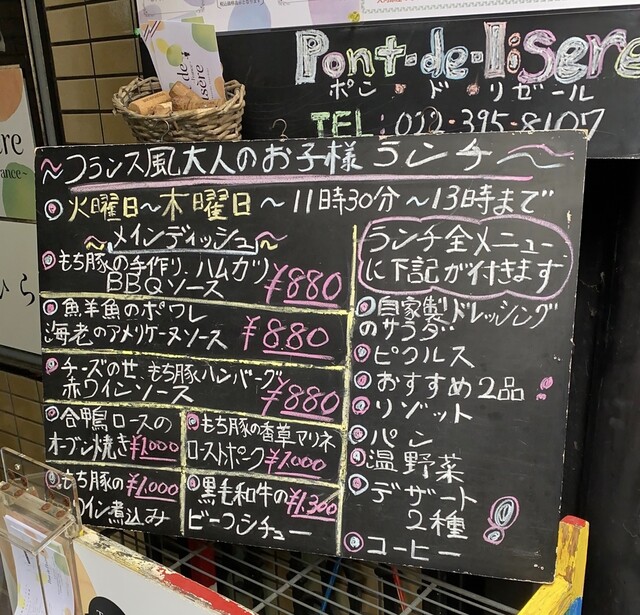 Pont-de-lisere
ポン・ド・リゼール
TEL:022-395-8107
~フランス風大人のお子様ランチ~
火曜日~木曜日~11時30分~13時まで
~メインディッシュ~
もち豚の手作りハムカツ
BBQソース ¥880
魚羊魚のポワレ
海老のアメリケーヌソース ¥880
チーズのせ、もち豚ハンバーグ
赤ワインソース ¥880
合鴨ロースの
オーブン焼き ¥1,000
もち豚の香草マリネ
ローストポーク ¥1,000
もち豚の ¥1,000
イン煮込み
黒毛和牛の ¥1,300
ビーフシチュー
ランチ全メニュー
に下記が付きます
自家製ドレッシング
のサラダ
ピクルス
おすすめ2品
リゾット
パン
温野菜
デザート
2種
コーヒー
de
isère
ere
ance~
ひら